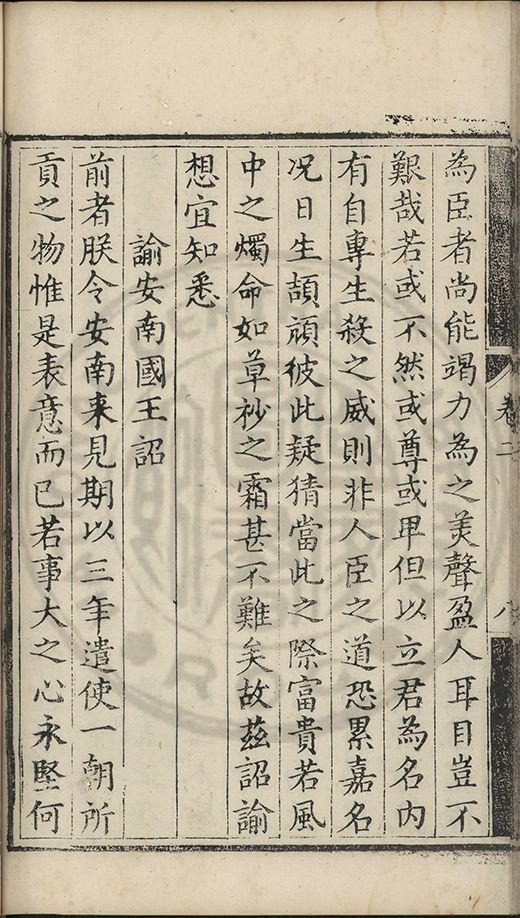 卷二
八
為臣者尚能竭力為之美聲盈人耳目豈不
艱哉若或不然或尊或卑但以立君為名内
有自專生殺之威則非人臣之道恐累嘉名
况日生頡頏彼此疑猜當此之際富貴若風
中之燭命如草杪之霜甚不難矣故兹詔諭
想宜知悉
諭安南國王詔
前者朕令安南来見期以三年遣使一朝所
貢之物惟是表意而已若事大之心永堅何